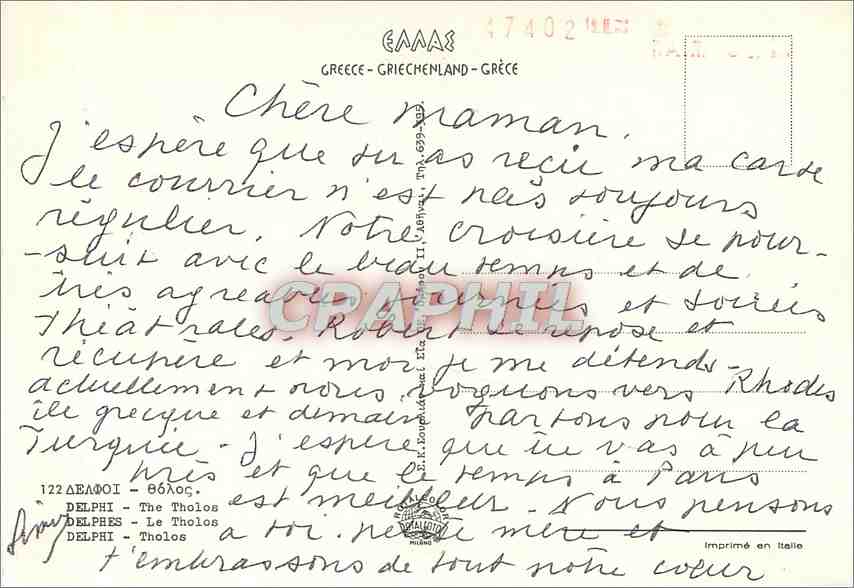 47402
ΕΛΛΑΣ
GREECE - GRIECHENLAND - GRÈCE
Chère maman.
J'espère que tu as reçu ma carte
le courrier n'est pas toujours
régulier. Notre croisière se pour-
-suit avec le beau temps et de
très agréables journées et soirées
théâtrales. Robert se repose et
récupère et moi je me détends -
actuellement nous voguons vers Rhodes
île grecque et demain partons pour la
Turquie - J'espère que tu vas à peu
près et que le temps à Paris
est meilleur. Nous pensons
a toi petite mère et
t'embrassons de tout notre cœur
CPAPHIL
122 ΔΕΛΦΟΙ - Θόλος.
DELPHI - The Tholos
DELPHES - Le Tholos
DELPHI - Tholos
ROTALCOLOR
ROTALFOTO
MILANO
Imprimé en Italie